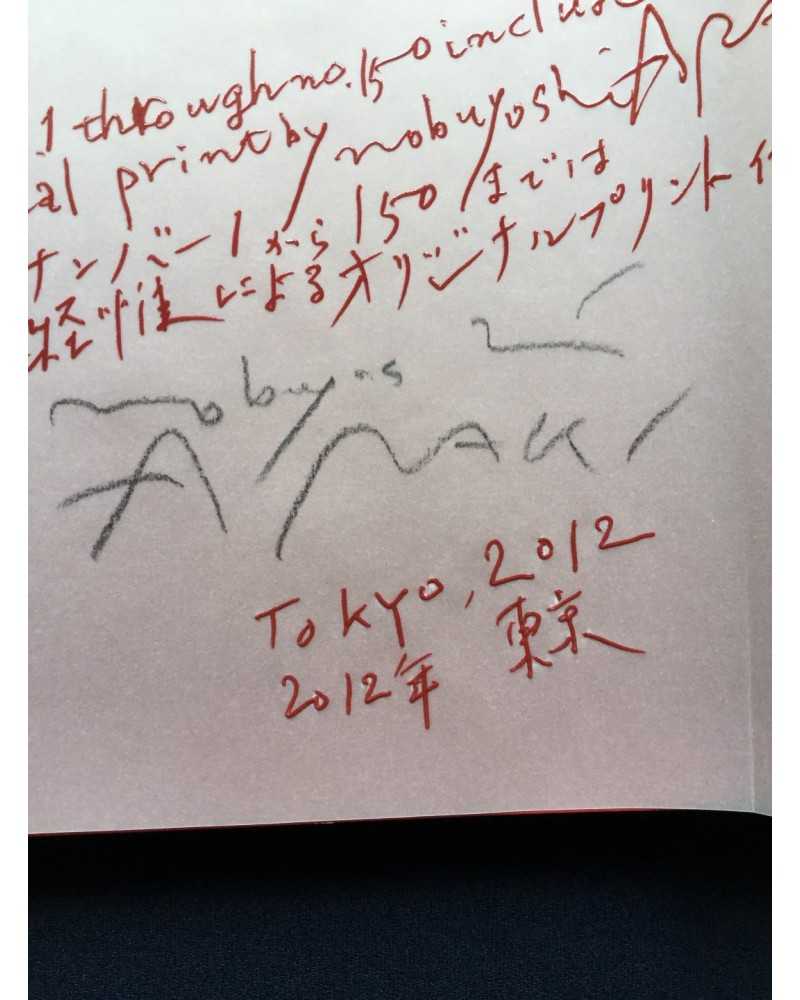 .1 through no.150 include
al print by nobuyoshi ARA
ナンバー1から150までは
経惟によるオリジナルプリント付
nobuyoshi
ARAKI
Tokyo, 2012
2012年 東京